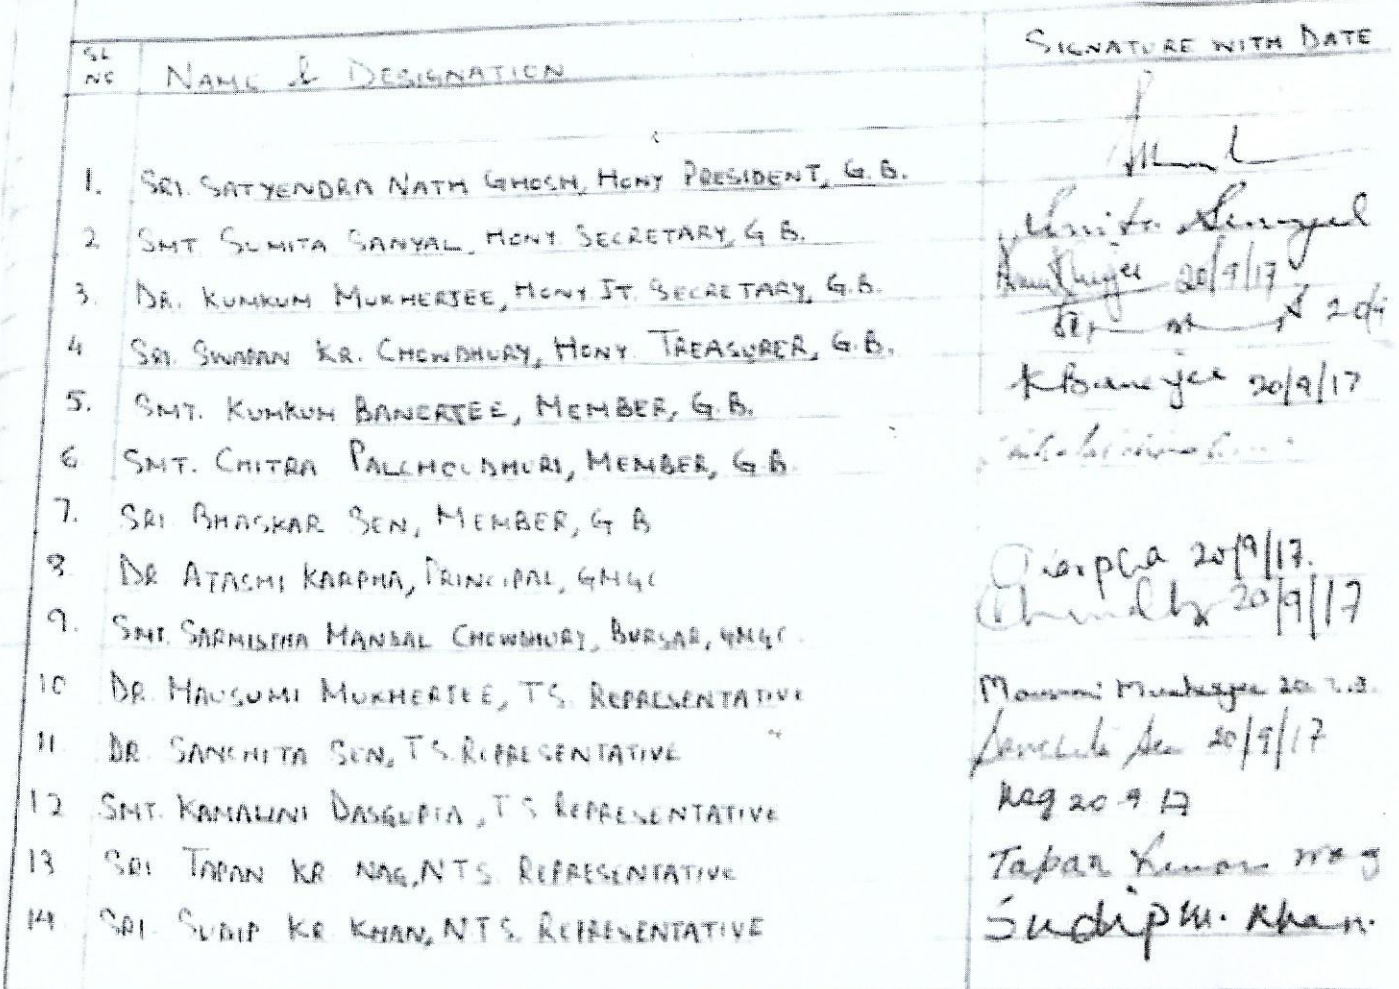 SL NO NAME & DESIGNATION SIGNATURE WITH DATE
1. SRI. SATYENDRA NATH GHOSH, HONY PRESIDENT, G.B.
2 SMT SUMITA SANYAL, HONY. SECRETARY, G B. Sumita Sanyal
3. DR. KUMKUM MUKHERJEE, HONY JT. SECRETARY, G.B. 20/9/17
4 SRI. SWAPAN KR. CHOWDHURY, HONY. TREASURER, G.B.
5. SMT. KUMKUM BANERJEE, MEMBER, G.B. K Banerjee 20/9/17
6 SMT. CHITRA PALCHOUDHURI, MEMBER, G B.
7. SRI BHASKAR SEN, MEMBER, G B
8. DR ATASHI KARPHA, PRINCIPAL, GMGC 20/9/17.
9. SMT. SARMISTHA MANDAL CHOWDHURY, BURSAR, GMGC. 20/9/17
10 DR. MAUSUMI MUKHERJEE, TS. REPRESENTATIVE Mousumi Mukherjee
11 DR. SANCHITA SEN, T S. REPRESENTATIVE Sanchita Sen 20/9/17
12 SMT. KAMALINI DASGUPTA, T S REPRESENTATIVE 20 9 17
13 SRI TAPAN KR NAG, NTS. REPRESENTATIVE Tapan Kumar Nag
14 SRI. SUDIP KR KHAN, NTS. REPRESENTATIVE Sudip Kr. Khan.